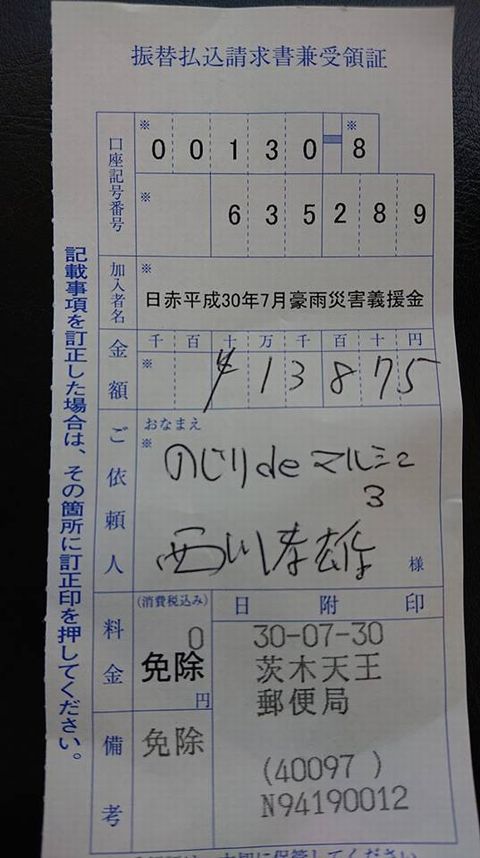 振替払込請求書兼受領証
口座記号番号
※ ※
00130-8
※
635289
加入者名
※
日赤平成30年7月豪雨災害義援金
金額
千百十万千百十円
※
¥13875
ご依頼人
おなまえ
※
のじりdeマルシェ
3
西川孝雄
様
料金
(消費税込み)
0
免除
円
日附印
30-07-30
茨木天王
郵便局
(40097 )
N94190012
備考
免除
記載事項を訂正した場合は、その箇所に訂正印を押してください。